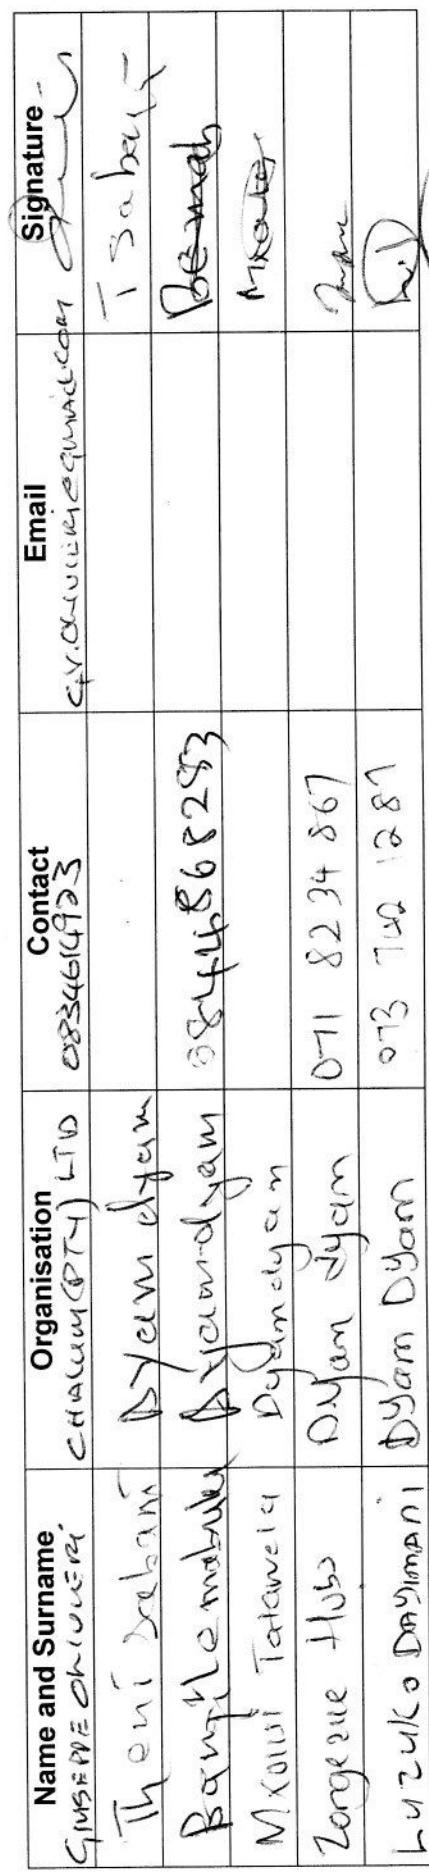 Name and Surname Organisation Contact Email Signature
GIUSEPPE OLIVIERI CHALUM (PTY) LTD 0834614923 G.V.OLIVIERI@GMAIL.COM
Theni Sabani Dyam dyam T Sabani
Dyamdyam 0844868293
Mxolisi Dyamdyam
Zongezile Hobo Dyam dyam 071 8234 867
LUZUKO DAYIMANI Dyam Dyam 073 742 1287